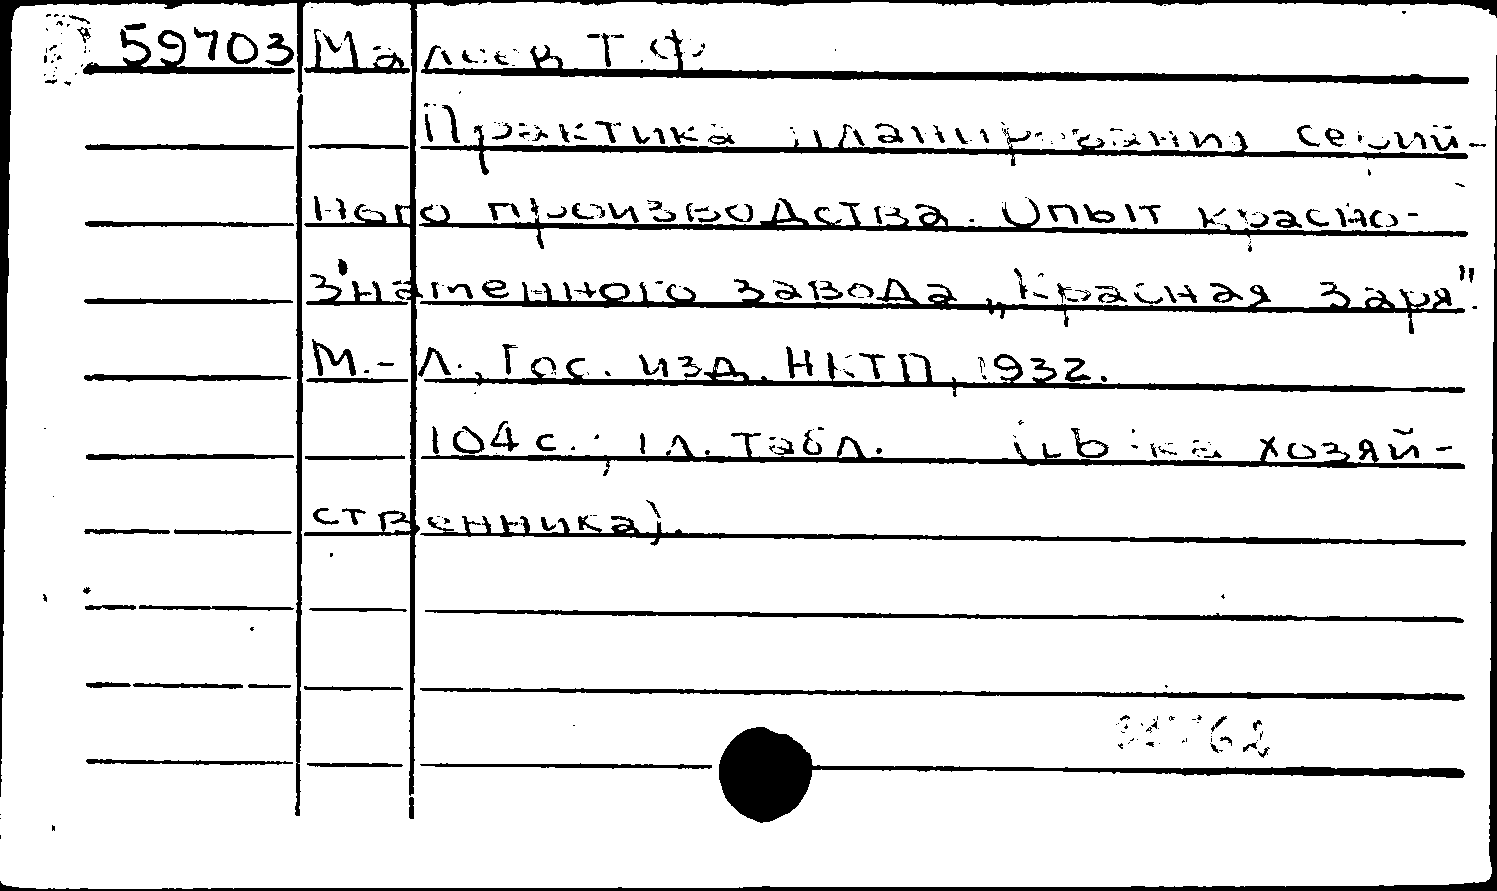 59703 Малеев Т.Ф
Практика планирования серий-
ного производства. Опыт красно-
знаменного завода „Красная заря".
М.-Л., Гос. изд. НКТП, 1932.
104 с.; 1 л. табл. хозяй-
ственника).